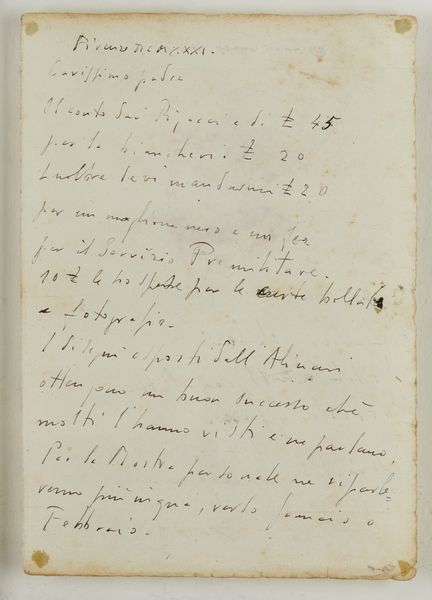 Firenze MCMXXXI.
Carissimo padre
Il conto dai Rigacci è di £ 45
per la biancheria £ 20
Inoltre devi mandarmi £ 20
per un maglione nero e un fez
per il Servizio Premilitare.
10 £ le ho spese per le carte bollate
e fotografie.
I disegni esposti dall'Alinari
ottengono un buon successo chè
molti l'hanno visti e ne parlano.
Per la Mostra personale ne riparle=
remo più in qua, verso gennaio o
Febbraio.